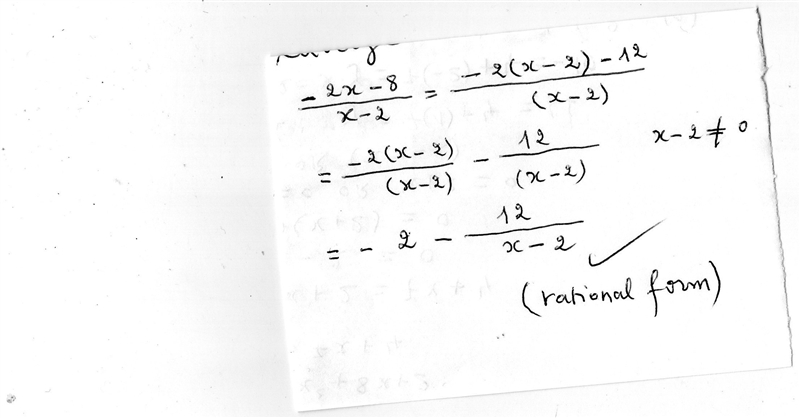 -2x-8/x-2 = -2(x-2)-12/(x-2)
= -2(x-2)/(x-2) - 12/(x-2)   x-2≠0
= -2 - 12/x-2 ✓
(rational form)